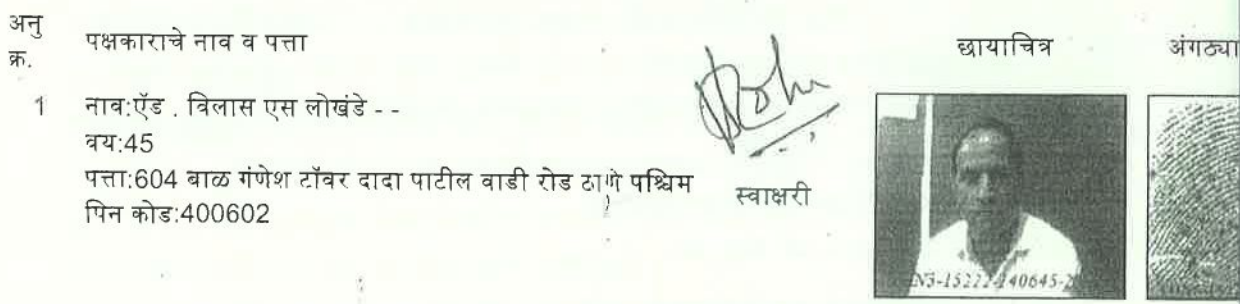 अनु क्र.
पक्षकाराचे नाव व पत्ता
छायाचित्र
अंगठ्या
1
नाव:ऍड . विलास एस लोखंडे - -
वय:45
पत्ता:604 बाळ गंणेश टॉवर दादा पाटील वाडी रोड ठाणे पश्चिम
पिन कोड:400602
स्वाक्षरी